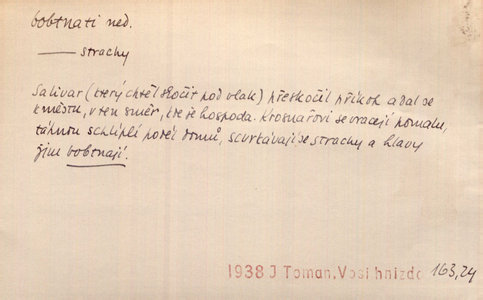 bobtnati ned.
—— strachy
Salivar (který chtěl skočit pod vlak) přeskočil příkop a dal se
k městu, v ten směr, kde je hospoda. Krosnařovi se vracejí pomalu,
táhnou schlíplí potěl domů, scvrkávají se strachy a hlavy
jim bobtnají.
1938 J Toman, Vosí hnízdo 163,24